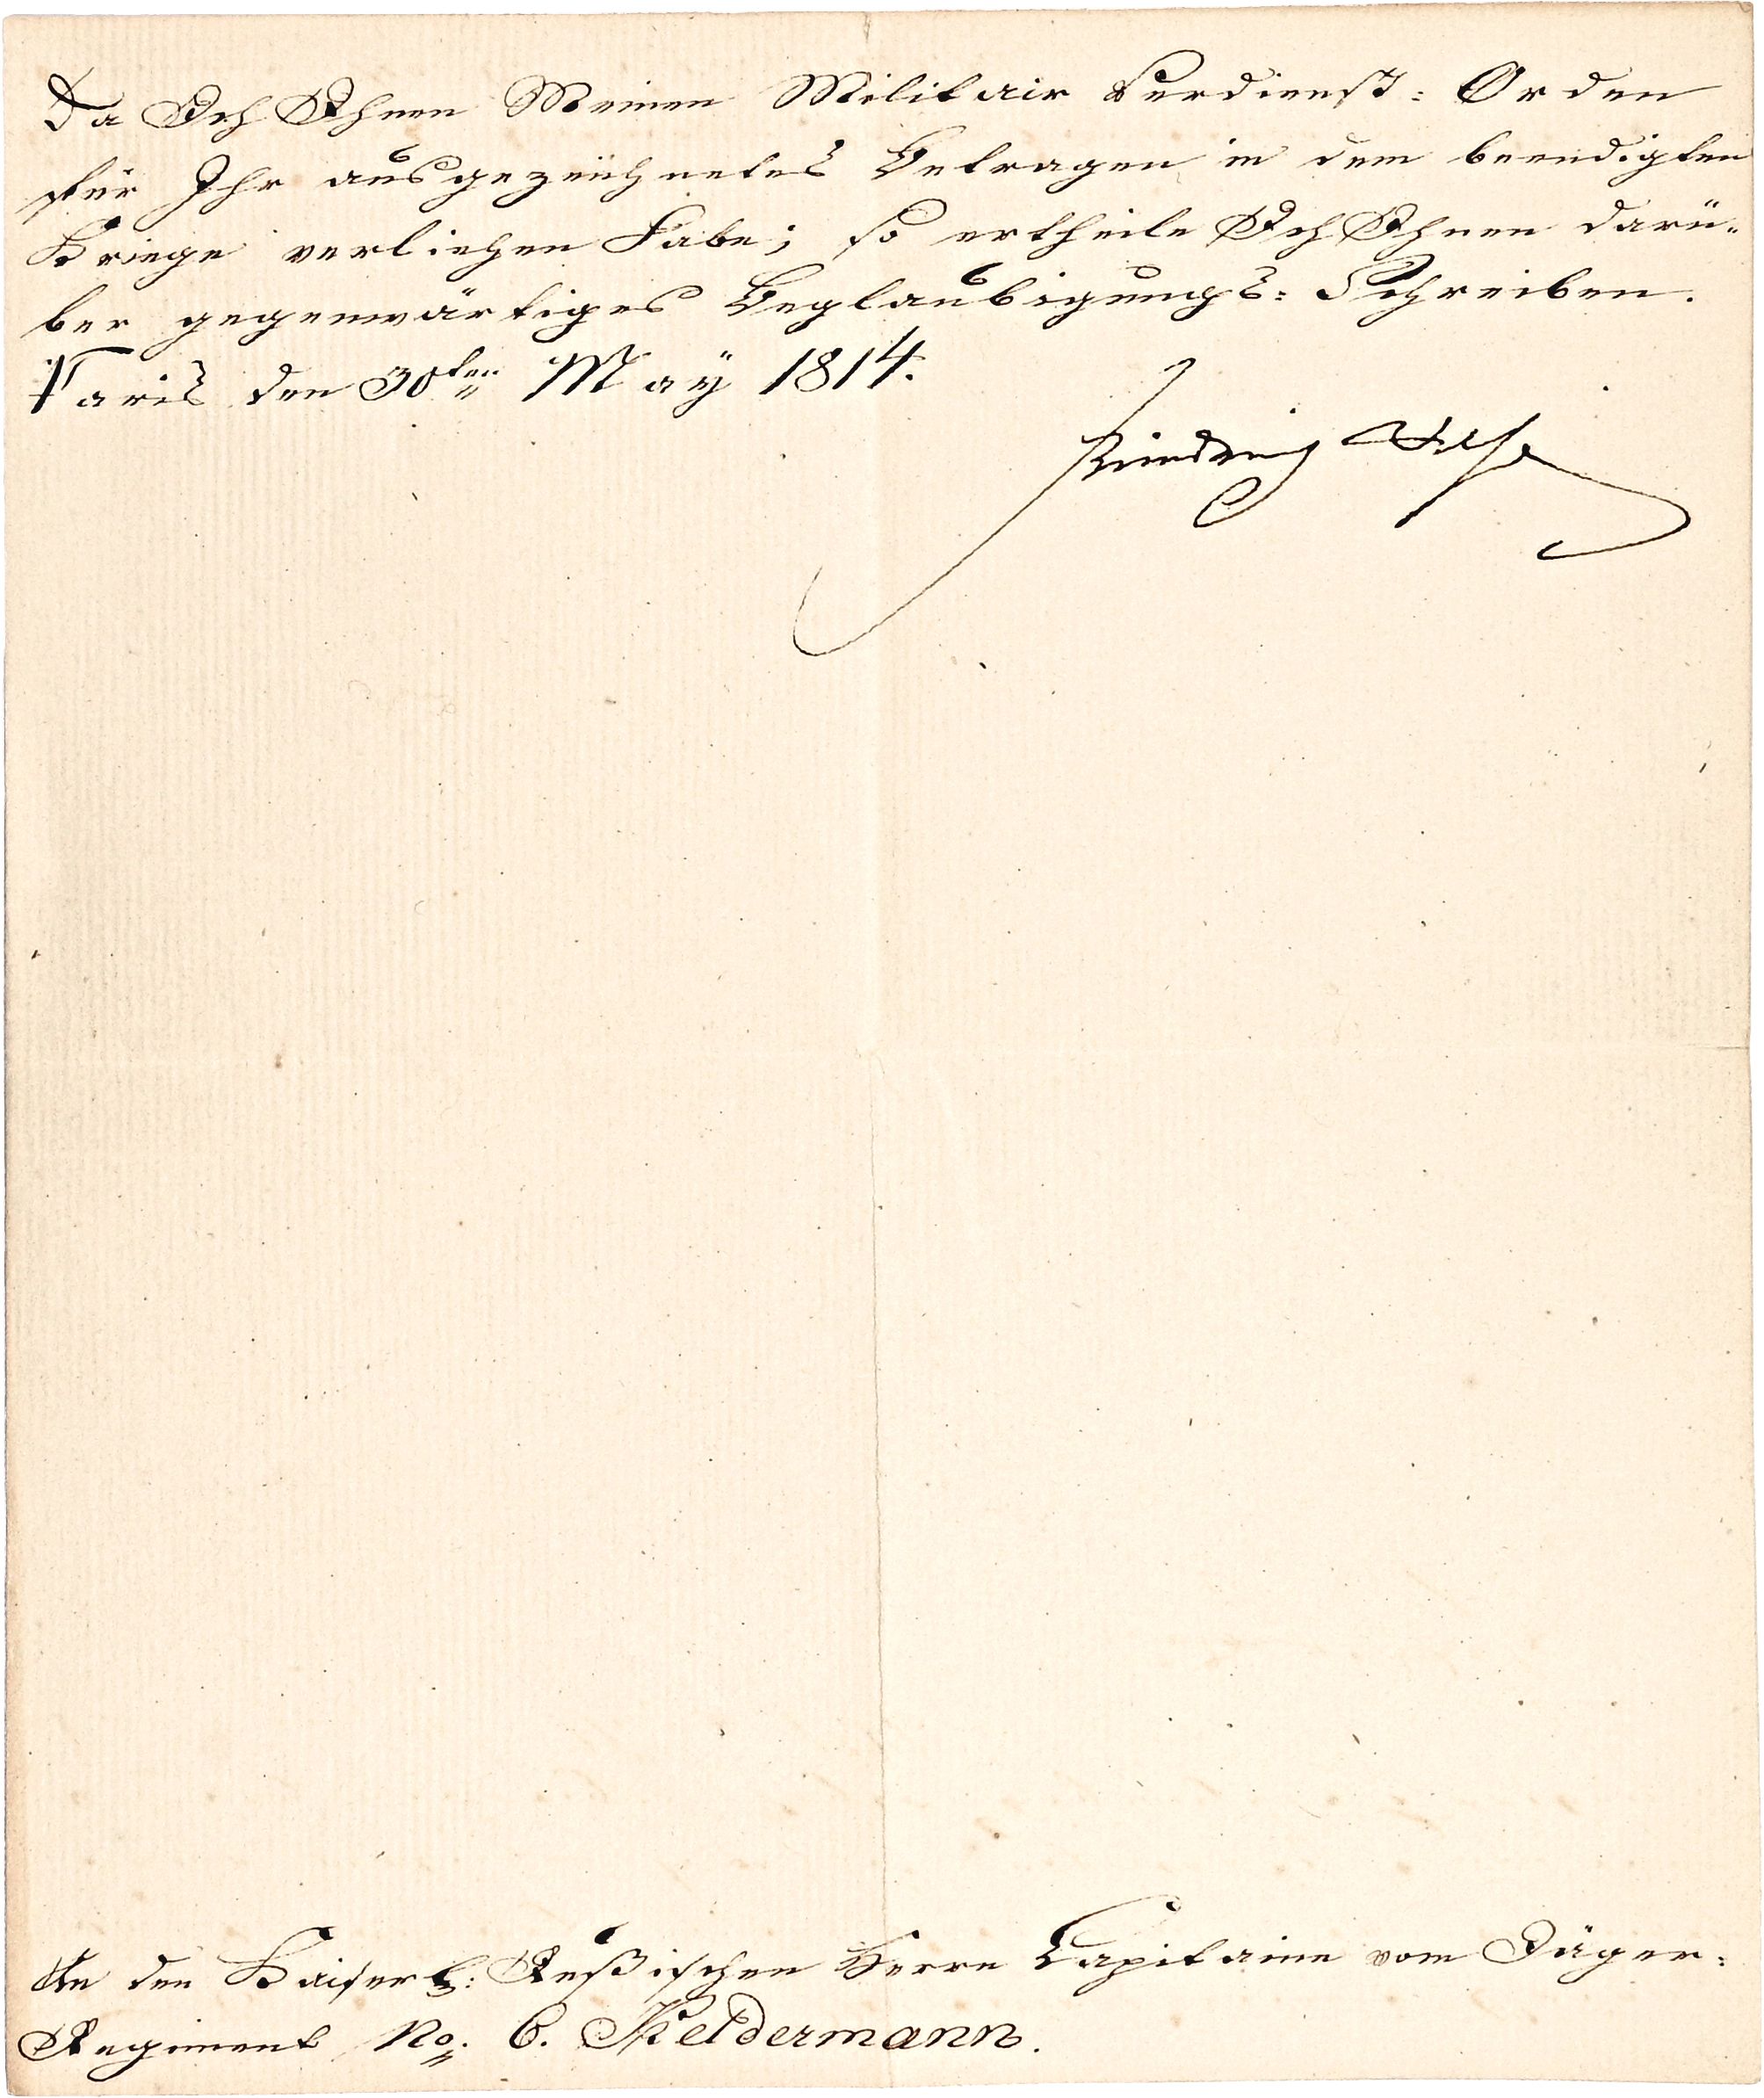 Da Ich Ihnen Meinen Militair Verdienst: Orden
für Ihr ausgezeichnetes Betragen in dem beendigten
Kriege verliehen habe; so ertheile Ich Ihnen darü-
ber gegenwärtiges Beglaubigungs: Schreiben.
Paris den 30ten May 1814.
Friedrich Wilh
An den Kaiserl: Rußischen Herrn Capitaine vom Jäger:
Regiment No: 6. Keldermann.